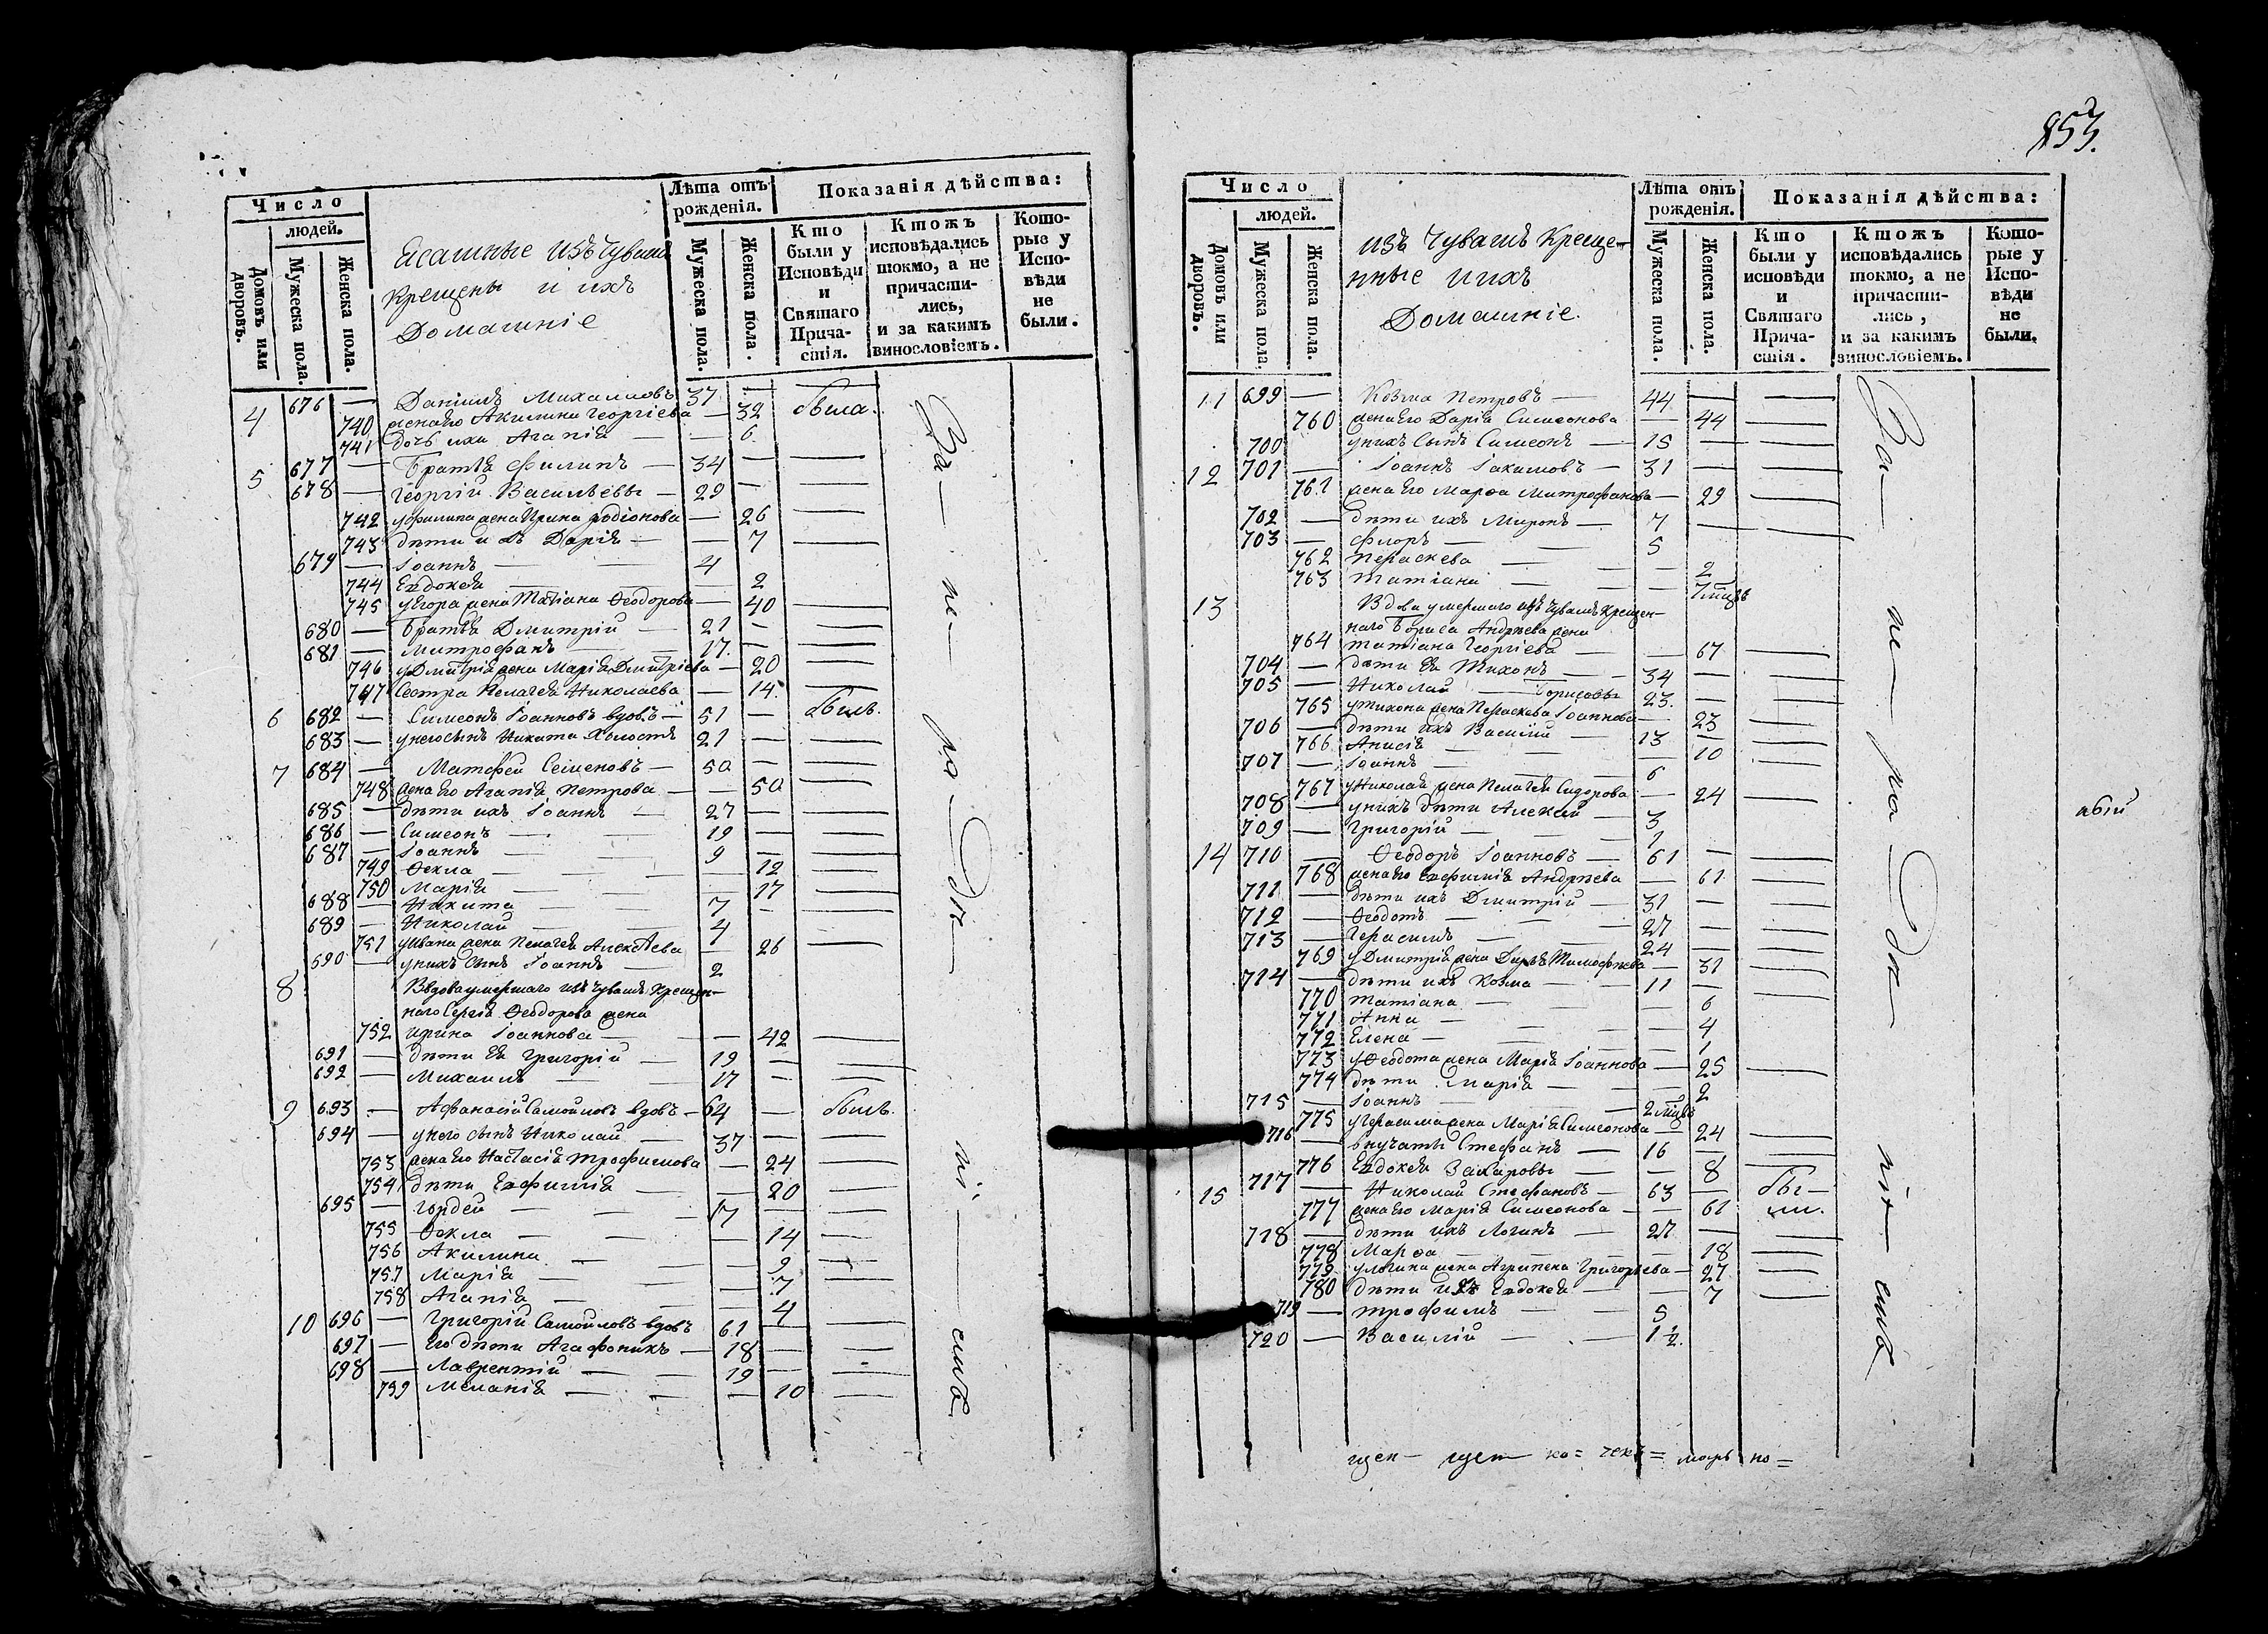 Число
людей.
Домовъ или дворовъ.
Мужеска пола.
Женска пола.
Ясашные изъ Чувашъ
Крещены и ихъ
Домашніе
Лѣта отъ рожденія.
Мужеска пола.
Женска пола.
Показанія дѣйства:
Кто были у Исповѣди и Святаго Причастія.
Ктожъ исповѣдались токмо, а не причастились, и за какимъ винословіемъ.
Которые у Исповѣди не были.
4 676 — Даніилъ Михаиловъ 37 —
740 жена его Акилина Георгіева — 32 была.
741 дочь ихъ Агапія — — 6
5 677 — Братья Филипъ — 34 —
678 — Георгій Васильевы — 29 —
742 у Филипа жена Ирина Родіонова — 26
743 дѣти ихъ Дарія — — 7
679 — Іоаннъ — — 4
744 Евдокея — — 2
745 у Егора жена Татіана Ѳеодорова — 40
680 — Братья Дмитрій — 21 —
681 — Митрофанъ — 17. —
746 у Дмитрія жена Марія Дмитріева — 20
747 Сестра Пелагея Николаева — 14.
6 682 — Симеонъ Іоанновъ вдовъ — 51 — былъ.
683 — у него сынъ Никита Холостъ 21 —
7 684 — Матфей Семеновъ — 50 —
748 жена его Агапія Петрова — — 50
685 — дѣти ихъ Іоаннъ — 27 —
686 — Симеонъ — 19 —
687 — Іоаннъ — 9 —
749 Ѳекла — — 12
750 Марія — — 17
688 — Никита — 7 —
689 — Николай — 4
751 у Ивана жена Пелагея Алексѣева — 26
690 — у нихъ сынъ Іоаннъ — 2
8 Вдова умершаго изъ Чувашъ Крещен-
наго Сергѣя Ѳеодорова жена
752 Ирина Іоаннова — — 42
691 — дѣти ея Григорій — 19 —
692 — Михаилъ — 17 —
9 693 — Афанасій Самойловъ вдовъ — 64 — былъ.
694 — у него сынъ Николай — 37 —
753 жена его Настасія Трофимова — 24
754 дѣти Евфимія — — 20
695 — Гордей — — 17 —
755 Ѳекла — — 14
756 Акилина — — 9
757 Марія — — 7
758 Агапія — — 4
10 696 — Григорій Самойловъ вдовъ 61 —
697 — Его дѣти Агафоникъ — 18 —
698 — Лаврентій — 19 —
759 Меланія — — 10
За — не — ра — дѣ — ні — емъ
853.
Число
людей.
Домовъ или дворовъ.
Мужеска пола.
Женска пола.
изъ Чувашъ Креще-
нные и ихъ
Домашніе.
Лѣта отъ рожденія.
Мужеска пола.
Женска пола.
Показанія дѣйства:
Кто были у исповѣди и Святаго Причастія.
Ктожъ исповѣдались токмо, а не причастились, и за какимъ винословіемъ.
Которые у Исповѣди не были.
11 699 — Козма Петровъ — 44 —
760 жена его Дарія Симеонова — 44
700 у нихъ сынъ Симеонъ — 15 —
12 701 — Іоаннъ Іакимовъ — 31 —
761 жена его Марѳа Митрофанова — 29
702 — дѣти ихъ Миронъ — 7 —
703 — Флоръ — 5
762 Пераскева — — 2
763 Татіана — — 7 мцъ
13 Вдова умершаго изъ Чувашъ Крещен-
наго Бориса Андреева жена
764 Татіана Георгіева — — 67
704 — дѣти ея Тихонъ — 34 —
705 — Николай — Борисовы 23. —
765 у Тихона жена Пераскева Іоаннова — 23
706 — дѣти ихъ Василій — 13 —
766 Анисія — — 10
707 — Іоаннъ — 6
767 у Николая жена Пелагея Сидорова — 24
708 — у нихъ дѣти Алексій — 3
709 — Григорій — 1
14 710 — Ѳеодоръ Іоанновъ — 61 —
768 жена его Евфимія Андреева — 61
711 — дѣти ихъ Дмитрій — 31 —
712 — Ѳеодотъ — 27 —
713 — Герасимъ — 24 —
769 у Дмитрія жена Дарья Тимофеева — 31
714 — дѣти ихъ Козма — 11 —
770 Татіана — — 6
771 Анна — — 4
772 Елена — — 1
773 у Ѳеодота жена Марія Іоаннова — 25
774 дѣти Марія — — 2
715 — Іоаннъ — 2 мцъ
775 у Герасима жена Марія Симеонова — 24
716 — внучаты Стефанъ — 16 —
776 Евдокея Захаровы — — 8
15 717 — Николай Стефановъ — 63 — бы-
777 жена его Марія Симеонова — — 61 ли.
718 — дѣти ихъ Логинъ — 27 —
778 Марѳа — — 18
779 у Логина жена Агрипена Григорьева — 27
780 дѣти ихъ Евдокея — — 7
719 — Трофимъ — 5
720 — Василій — 1½.
За — не — ра — дѣ — ні — емъ
абій